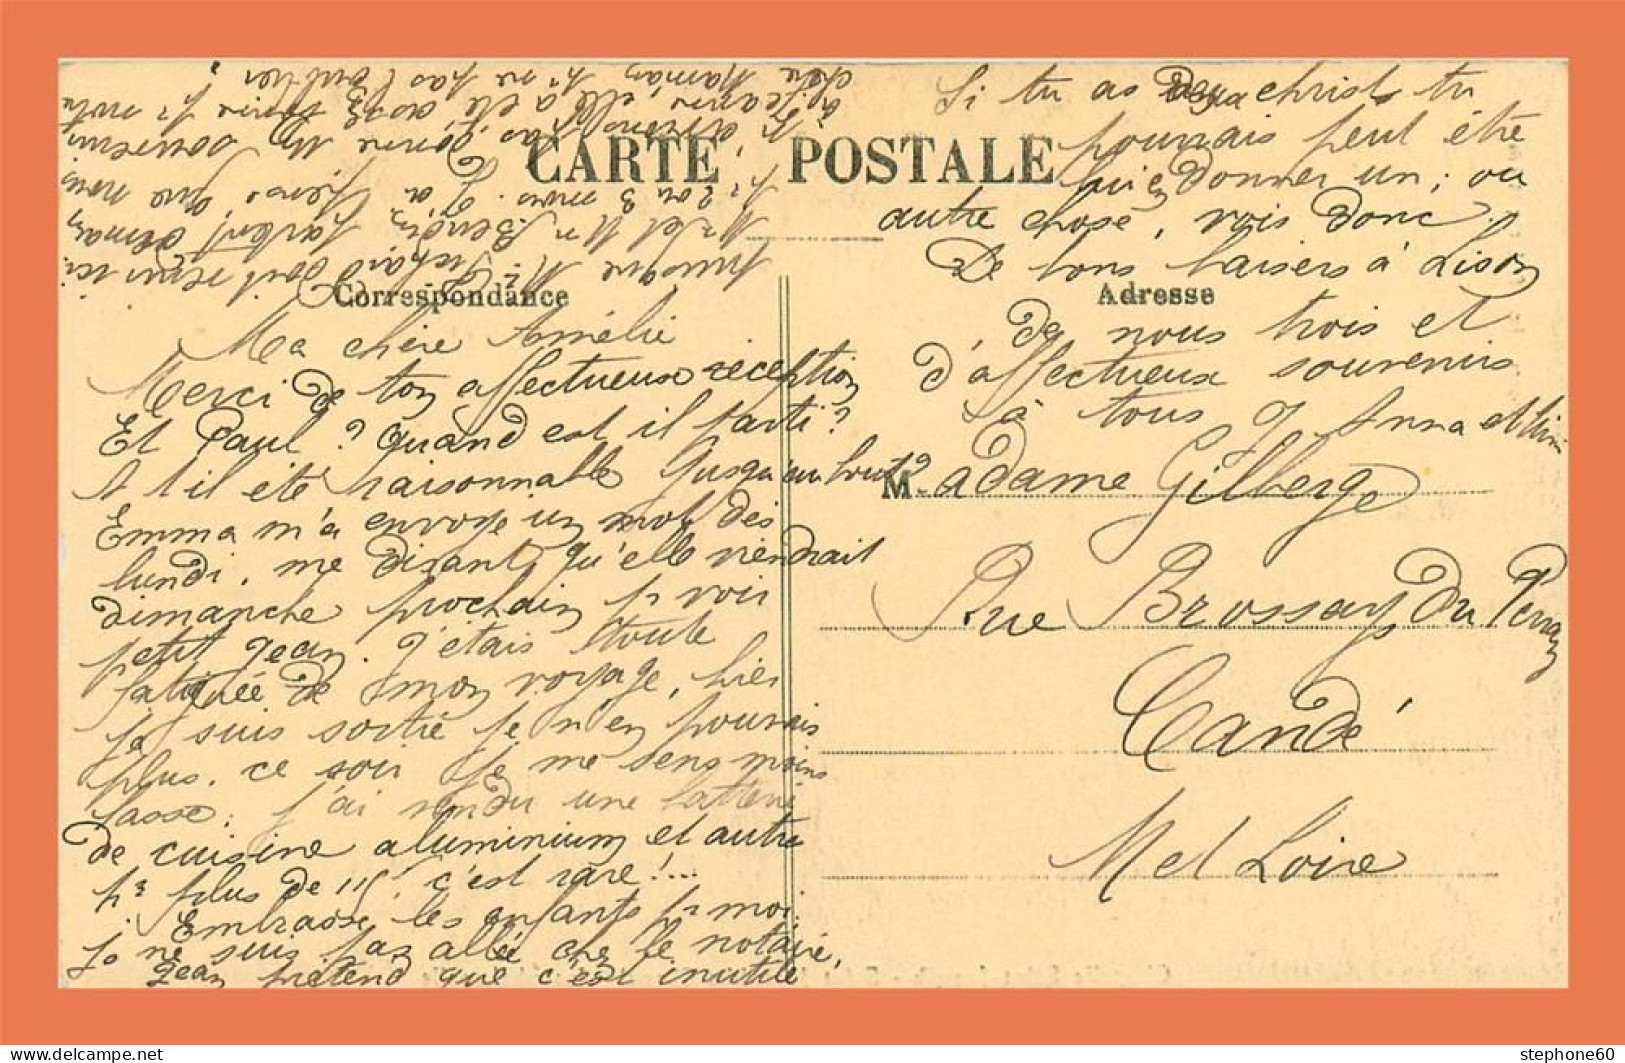 CARTE POSTALE
Correspondance
Ma chère Amélie
Merci de ton affectueuse réception
Et Paul ? quand est il parti ?
A t il été raisonnable jusqu'au bout ?
Emma m'a envoyé un mot dès
lundi, me disant qu'elle viendrait
dimanche prochain pr voir
petit Jean. J'étais toute
fatiguée de mon voyage, hier
je suis sortie je n'en pouvais
plus. ce soir je me sens moins
lasse. j'ai vendu une batterie
de cuisine aluminium et autre
pr plus de 115f c'est rare !...
Embrasse les enfants pr moi.
Je ne suis pas allée chez le notaire,
Jean prétend que c'est inutile
puisque Mr Richard doit venir ici
Mr et Mme partent demain
pr 2 ou 3 mois. que nous
souvenir
à Jeanne, elle a été
chère Maman pr ne pas l'oublier
Si tu as deux christs tu
pourrais peut être
lui en donner un ; ou
autre chose, vois donc.
De bons baisers à Lison
Adresse
de nous trois et
d'affectueux souvenirs
à tous J Anna et
Madame Gilberge
Rue Brossays du Perray
Candé
M et Loire
stephone60
www.delcampe.net